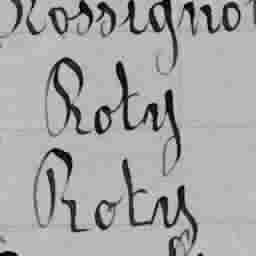 Rossignol
Roty
Roty